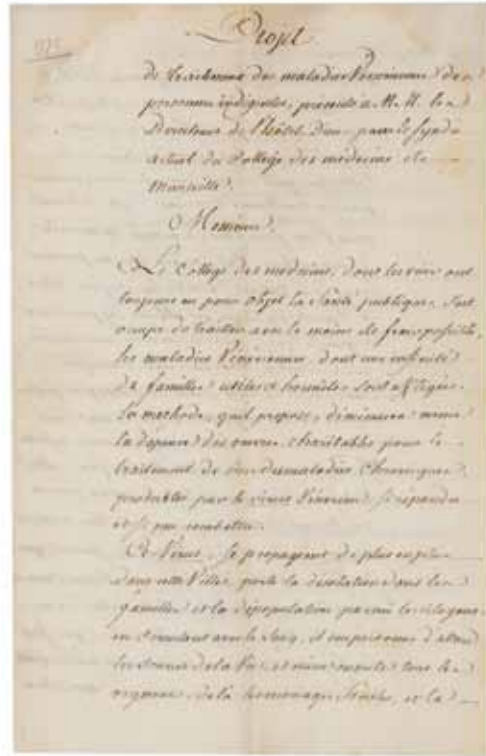 Projet
de traitement des maladies Vénériennes des
personnes indigentes, présenté à M.M. les
Directeurs de l'hôtel Dieu par le Syndic
actuel du Collège des médecins de
Marseille.
Messieurs,
Le Collège des médecins, dont les vues ont
toujours eu pour objet la Santé publique, s'est
occupé de traiter avec le moins de frais possible,
les maladies Vénériennes dont une infinité
de familles utiles et honnêtes sont affligées.
La méthode, qu'il propose, diminuera même
la dépense des œuvres charitables pour le
traitement de des maladies Chroniques,
produites par le virus Vénérien si répandu
et si peu combattu.
Ce Virus, se propageant de plus en plus
dans cette Ville, porte la désolation dans les
familles et la dépopulation parmi les citoyens,
en avec le sang, il empoisonne
les sources de la Vie, et tous les
organes de la